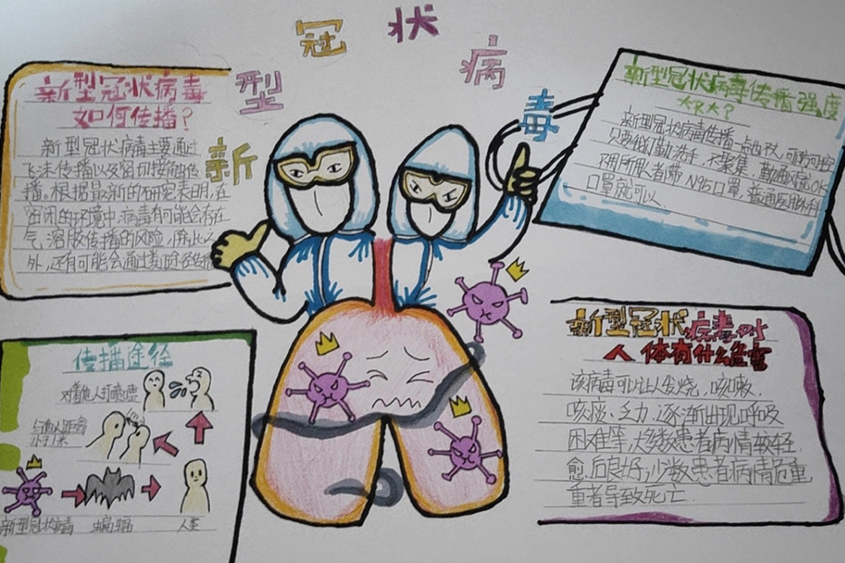 新型冠状病毒
新型冠状病毒
如何传播？
新型冠状病毒主要通过
飞沫传播以及密切接触传
播。根据最新的研究表明，在
密闭的环境中，病毒有可能会存在
气溶胶传播的风险，除此之
外，还有可能会通过
新型冠状病毒传播强度
大不大？
新型冠状病毒传播
只要做了勤洗手、不聚集、
N95口罩，普通医用
口罩就可以。
传播途径
打喷嚏
新型冠状病毒 蝙蝠 人类
新型冠状病毒对
人体有什么危害
该病毒可以让人发烧，咳嗽，
咳痰、乏力，逐渐出现呼吸
困难等，大多数患者病情较轻，
愈后良好，少数患者病情危重，
重者导致死亡。